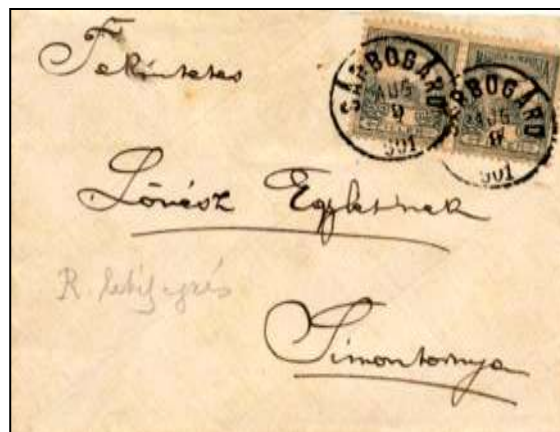 Tekintetes
SÁRBOGÁRD
AUG
9
901
SÁRBOGÁRD
AUG
9
901
Lövész Egyletnek
Simontornya